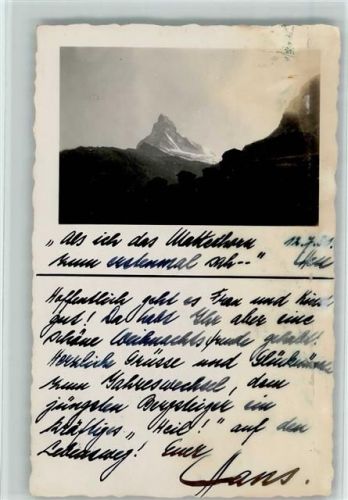 „Als ich das Matterhorn
zum erstenmal sah--"
Hoffentlich geht es Frau und Kind
gut! Da habt Ihr aber eine
schöne Weihnachtsfreude gehabt!
Herzliche Grüsse und Glückwünsche
zum Jahreswechsel, dem
jüngsten Bergsteiger ein
kräftiges „Heil!" auf den
Lebensweg! Euer
Hans.